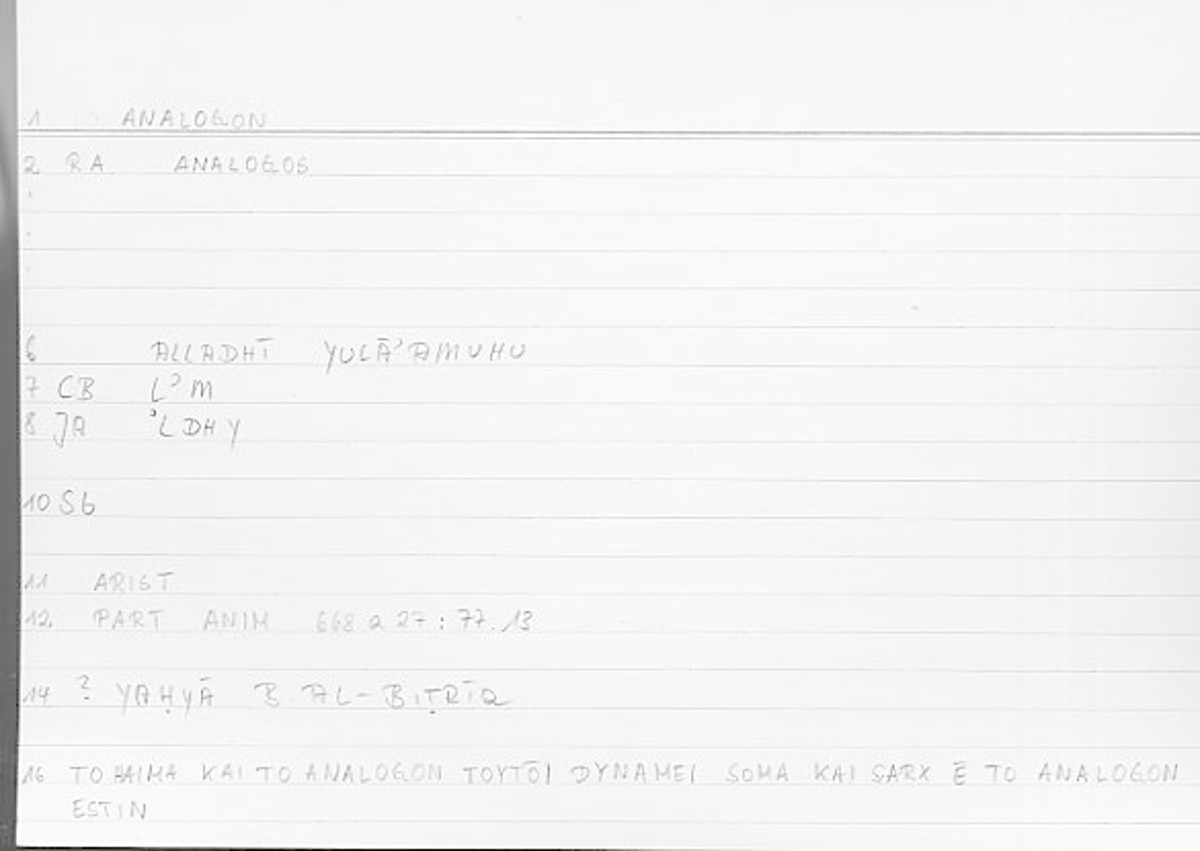 1 ANALOGON
2 RA ANALOGOS
6 ALLADHĪ YULĀʾAMUHU
7 CB LʾM
8 JA ʾLDHY
10 Sb
11 ARIST
12 PART ANIM 668 a 27 : 77.13
14 ? YAḤYĀ B. AL-BIṬRĪQ
16 TO HAIMA KAI TO ANALOGON TOYTŌI DYNAMEI SOMA KAI SARX Ē TO ANALOGON
ESTIN